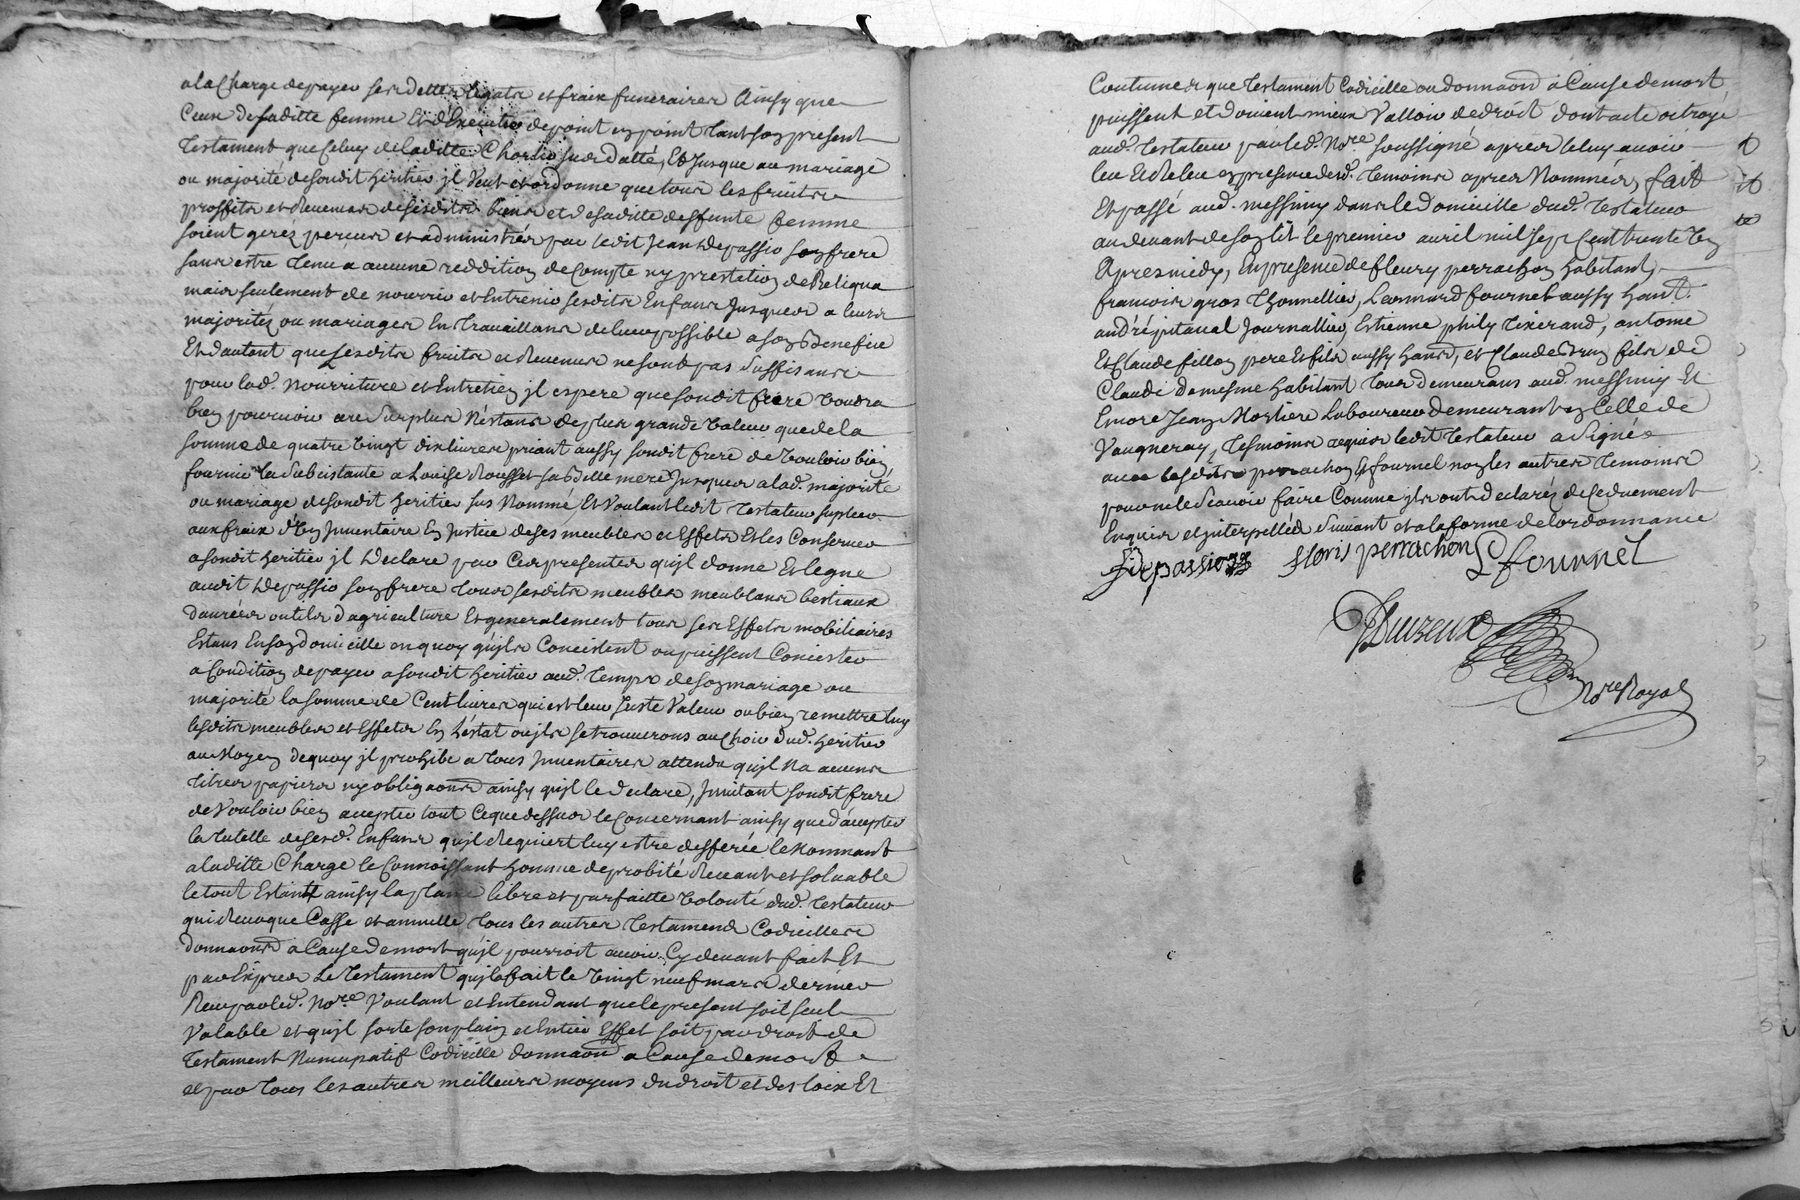 a la Charge de payer ses dettes legats et fraix funeraires Ainsy que
Ceux de saditte femme Et d'Executer de point en point tant son present
Testament que Celuy de laditte Charlin susdatté, Et Jusque au mariage
ou majorité de sondit heritier jl Veut et ordonne que tous les fruits
proffits et Revenus de sesdits biens et de saditte deffunte femme
soient gerez perceus et administrés par ledit Jean depassio son frere
sans estre tenu a aucune reddition de Compte ny prestation de Reliqua
mais seulement de nourrir et Entrenir sesdits Enfans Jusques a leurs
majorités ou mariages En travaillans de leur possible a son Benefice
Et d'autant que sesdits fruits et Revenus ne sont pas suffisans
pour lad. nourriture et Entretien jl espere que sondit frere voudra
bien pourvoir au surplus N'estans de plus grande valeur que de la
somme de quatre vingt dix livres priant aussy sondit frere de vouloir bien
fournir la subcistante a Louise Rousset sa Belle mere Jusques a lad. majorité
ou mariage de sondit heritier sus Nommé, Et Voulant ledit Testateur
aux fraix d'un Jnventaire En Justice de ses meubles et Effets Et les Conserver
a sondit heritier jl Declare par Ces presentes qu'jl donne Et legue
audit Depassio son frere tous sesdits meubles meublans bestiaux
danrées outils d'agriculture Et generalement tous ses Effets mobiliaires
Estans En son domicille en quoy qu'jls Concistent ou puissent Concister
a Condition de payer a sondit heritier aud. Temps de son mariage ou
majorité la somme de Cent livres qui est leur juste Valeur ou bien remettre luy
lesdits meubles et Effets En L'estat ou jls se trouverons au Choix dud. heritier
au Moyen de quoy jl prohibe a tous Jnventaires attendu qu'jl Na aucuns
titres papiers ny obligaons ainsy qu'jl le declare, Jnvitant sondit frere
de Vouloir bien accepter tout Ce que dessus le Concernant ainsy que d'accepter
la tutelle de sesd. Enfans qu'jl Requiert luy estre defferée le Nommant
a laditte Charge le Connoissant homme de probité Receant et solvable
le tout Estant ainsy la libre et parfaitte volonté dud. Testateur
qui Revoque Casse et annulle tous les autres Testamens Codicilles
donnaons a Cause de mort qu'jl pourroit avoir Cy devant fait Et
par Exprés Le Testament qu'jl a fait le vingt neuf mars dernier
Receu par led. Nore Voulant et Entendant que le present soit seul
Valable et qu'jl sorte son plain et Entier Effet soit par droit de
Testament Nuncupatif Codicille donnaon a Cause de mort
et par tous les autres meilleurs moyens du droit et des loix Et
Coutumes que Testament Codicille ou donnaon a Cause de mort
puissent et doivent mieux Valloir de droit dont acte octroyé
aud. Testateur par led. Nore soussigné apres leluy avoir
leu Et Releu en presence desd. Temoins apres Nommés, fait
Et passé aud. messimy dans le domicille dud. Testateur
au devant de son lit le premier avril mil sept Cent trente
Apres midy, En presence de fleury perrachon habitant,
francois gros Thonnellier, Leonnard fournel aussy hant.
andré pitaval Journallier, Estienne phily Tixerand, antoine
Et Claude fillon pere Et fils aussy hans, et Claude fils de
Claude de mesme habitant tous demeurans aud. messimy Et
Encore Jean Mortiere Laboureur demeurant en Celle de
Vaugneray, Tesmoins requis ledit Testateur a signé
avec lesdits perrachon Et fournel non les autres Temoins
pour ne le scavoir faire Comme jls ont declarés de Ce duement
Enquis et jnterpellés suivant et a la forme de lordonnance
J depassio floris perrachon L fournel
Duizeux
Nore Royal